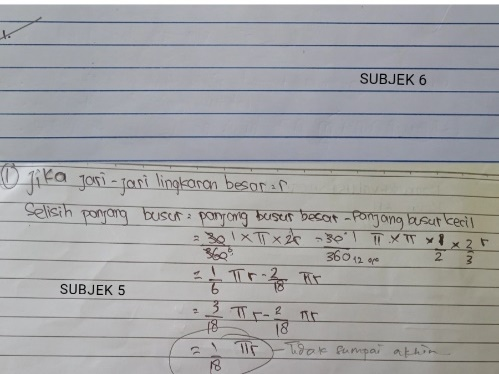 1.
SUBJEK 6
① Jika jari-jari lingkaran besar = r
Selisih panjang busur = panjang busur besar - Panjang busur kecil
= 30° 1/360° × π × 2r - 30° 1/360 12 π × π × 1/2 × 2r/3
= 1/6 πr - 2/18 πr
SUBJEK 5
= 3/18 πr - 2/18 πr
= 1/18 πr - Tidak sampai akhir